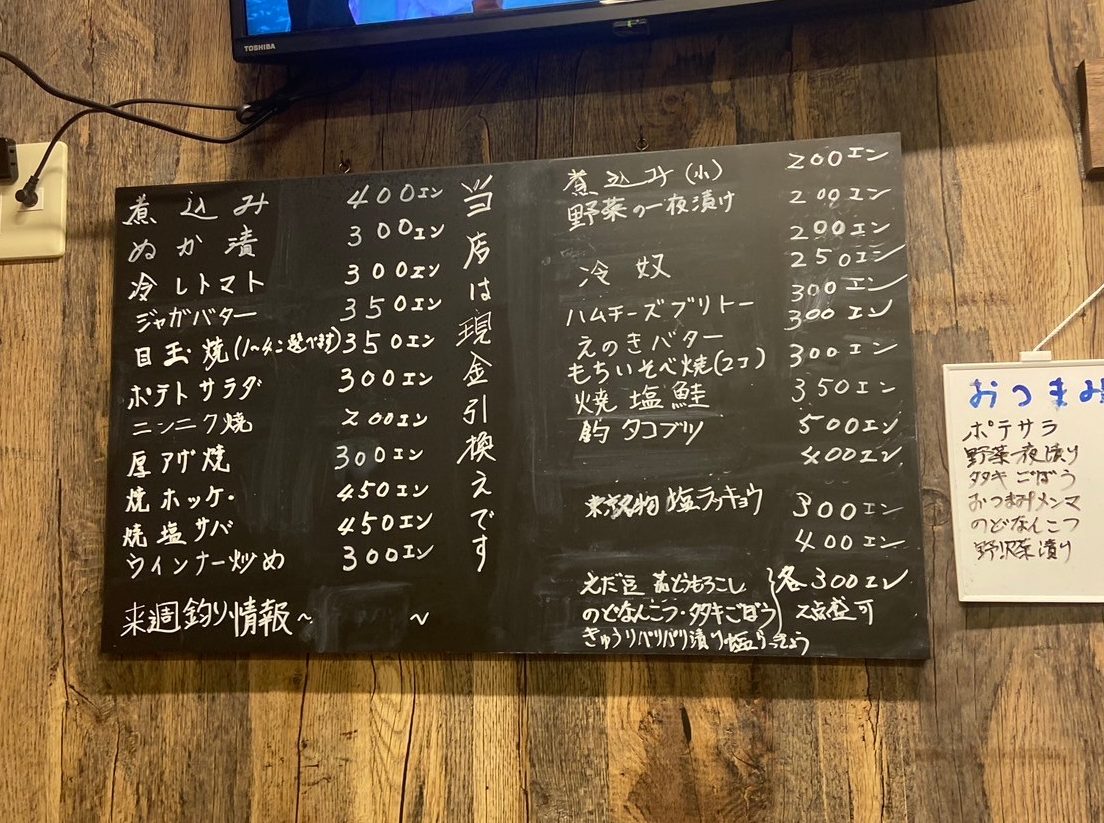 TOSHIBA
煮込み 400エン
ぬか漬 300エン
冷しトマト 300エン
ジャガバター 350エン
目玉焼(1〜4コ選べます) 350エン
ポテトサラダ 300エン
ニンニク焼 200エン
厚アゲ焼 300エン
焼ホッケ 450エン
焼塩サバ 450エン
ウインナー炒め 300エン
来週釣り情報〜 〜
当店は現金引換えです
煮込み(小) 200エン
野菜の一夜漬け 200エン
200エン
冷奴 250エン
300エン
ハムチーズブリトー 300エン
えのきバター
もちいそべ焼(2コ) 300エン
焼塩鮭 350エン
釣タコブツ 500エン
400エン
東京名物 塩ラッキョウ 300エン
400エン
えだ豆 茹とうもろこし
のどなんこつ・タタキごぼう
きゅうりパリパリ漬け 塩らっきょう
各300エン
2点盛可
おつまみ
ポテサラ
野菜一夜漬け
タタキごぼう
おつまみメンマ
のどなんこつ
野沢菜漬け